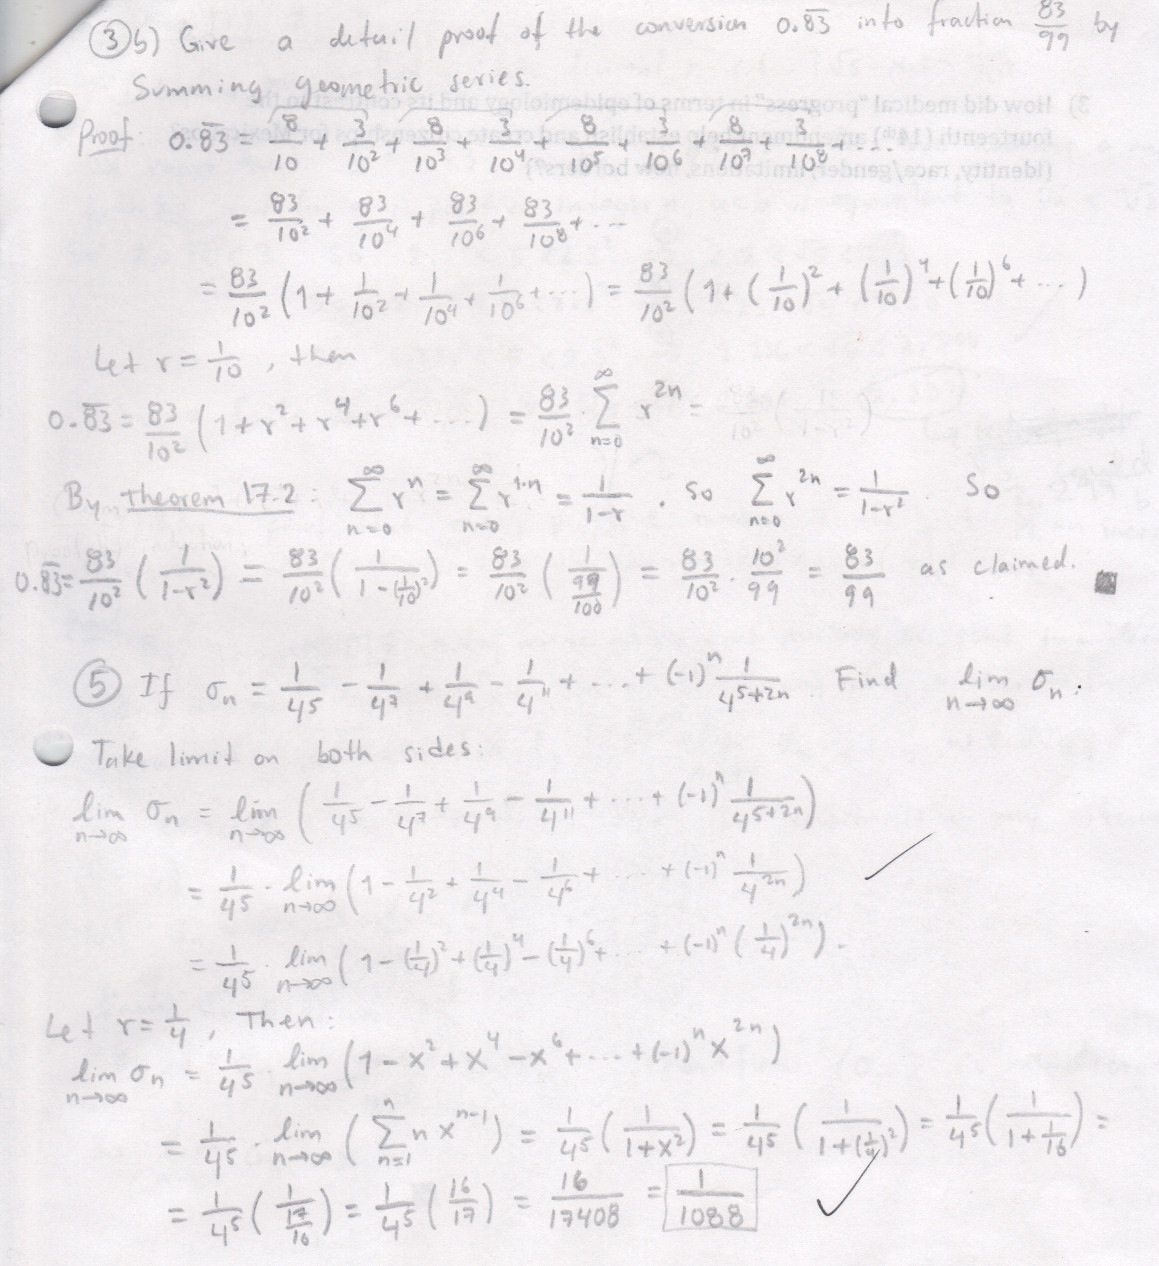 ③ b) Give a detail proof of the conversion 0.8̅3̅ into fraction 83/99 by
Summing geometric series.
Proof 0.8̅3̅ = 8/10 + 3/10² + 8/10³ + 3/10⁴ + 8/10⁵ + 3/10⁶ + 8/10⁷ + 3/10⁸ + ...
= 83/10² + 83/10⁴ + 83/10⁶ + 83/10⁸ + ...
= 83/10² (1 + 1/10² + 1/10⁴ + 1/10⁶ + ...) = 83/10² (1 + (1/10)² + (1/10)⁴ + (1/10)⁶ + ...)
Let r = 1/10, then
0.8̅3̅ = 83/10² (1 + r² + r⁴ + r⁶ + ...) = 83/10² · ∑_{n=0}^{∞} r^{2n} =
By Theorem 17.2: ∑_{n=0}^{∞} r^n = ∑_{n=0}^{∞} r^{1·n} = 1/(1-r). So ∑_{n=0}^{∞} r^{2n} = 1/(1-r²). So
0.8̅3̅ = 83/10² (1/(1-r²)) = 83/10² (1/(1-(1/10)²)) = 83/10² (1/(99/100)) = 83/10² · 10²/99 = 83/99 as claimed. ■
⑤ If σₙ = 1/4⁵ - 1/4⁷ + 1/4⁹ - 1/4¹¹ + ... + (-1)^n 1/4^{5+2n}. Find lim_{n→∞} σₙ.
Take limit on both sides:
lim_{n→∞} σₙ = lim_{n→∞} (1/4⁵ - 1/4⁷ + 1/4⁹ - 1/4¹¹ + ... + (-1)^n 1/4^{5+2n})
= 1/4⁵ · lim_{n→∞} (1 - 1/4² + 1/4⁴ - 1/4⁶ + ... + (-1)^n 1/4^{2n})
= 1/4⁵ · lim_{n→∞} (1 - (1/4)² + (1/4)⁴ - (1/4)⁶ + ... + (-1)^n (1/4)^{2n}).
Let r = 1/4, Then:
lim_{n→∞} σₙ = 1/4⁵ · lim_{n→∞} (1 - x² + x⁴ - x⁶ + ... + (-1)^n x^{2n})
= 1/4⁵ · lim_{n→∞} (∑_{n=1}^{n} n x^{n-1}) = 1/4⁵ (1/(1+x²)) = 1/4⁵ (1/(1+(1/4)²)) = 1/4⁵ (1/(1+1/16)) =
= 1/4⁵ (1/(17/16)) = 1/4⁵ (16/17) = 16/17408 = 1/1088